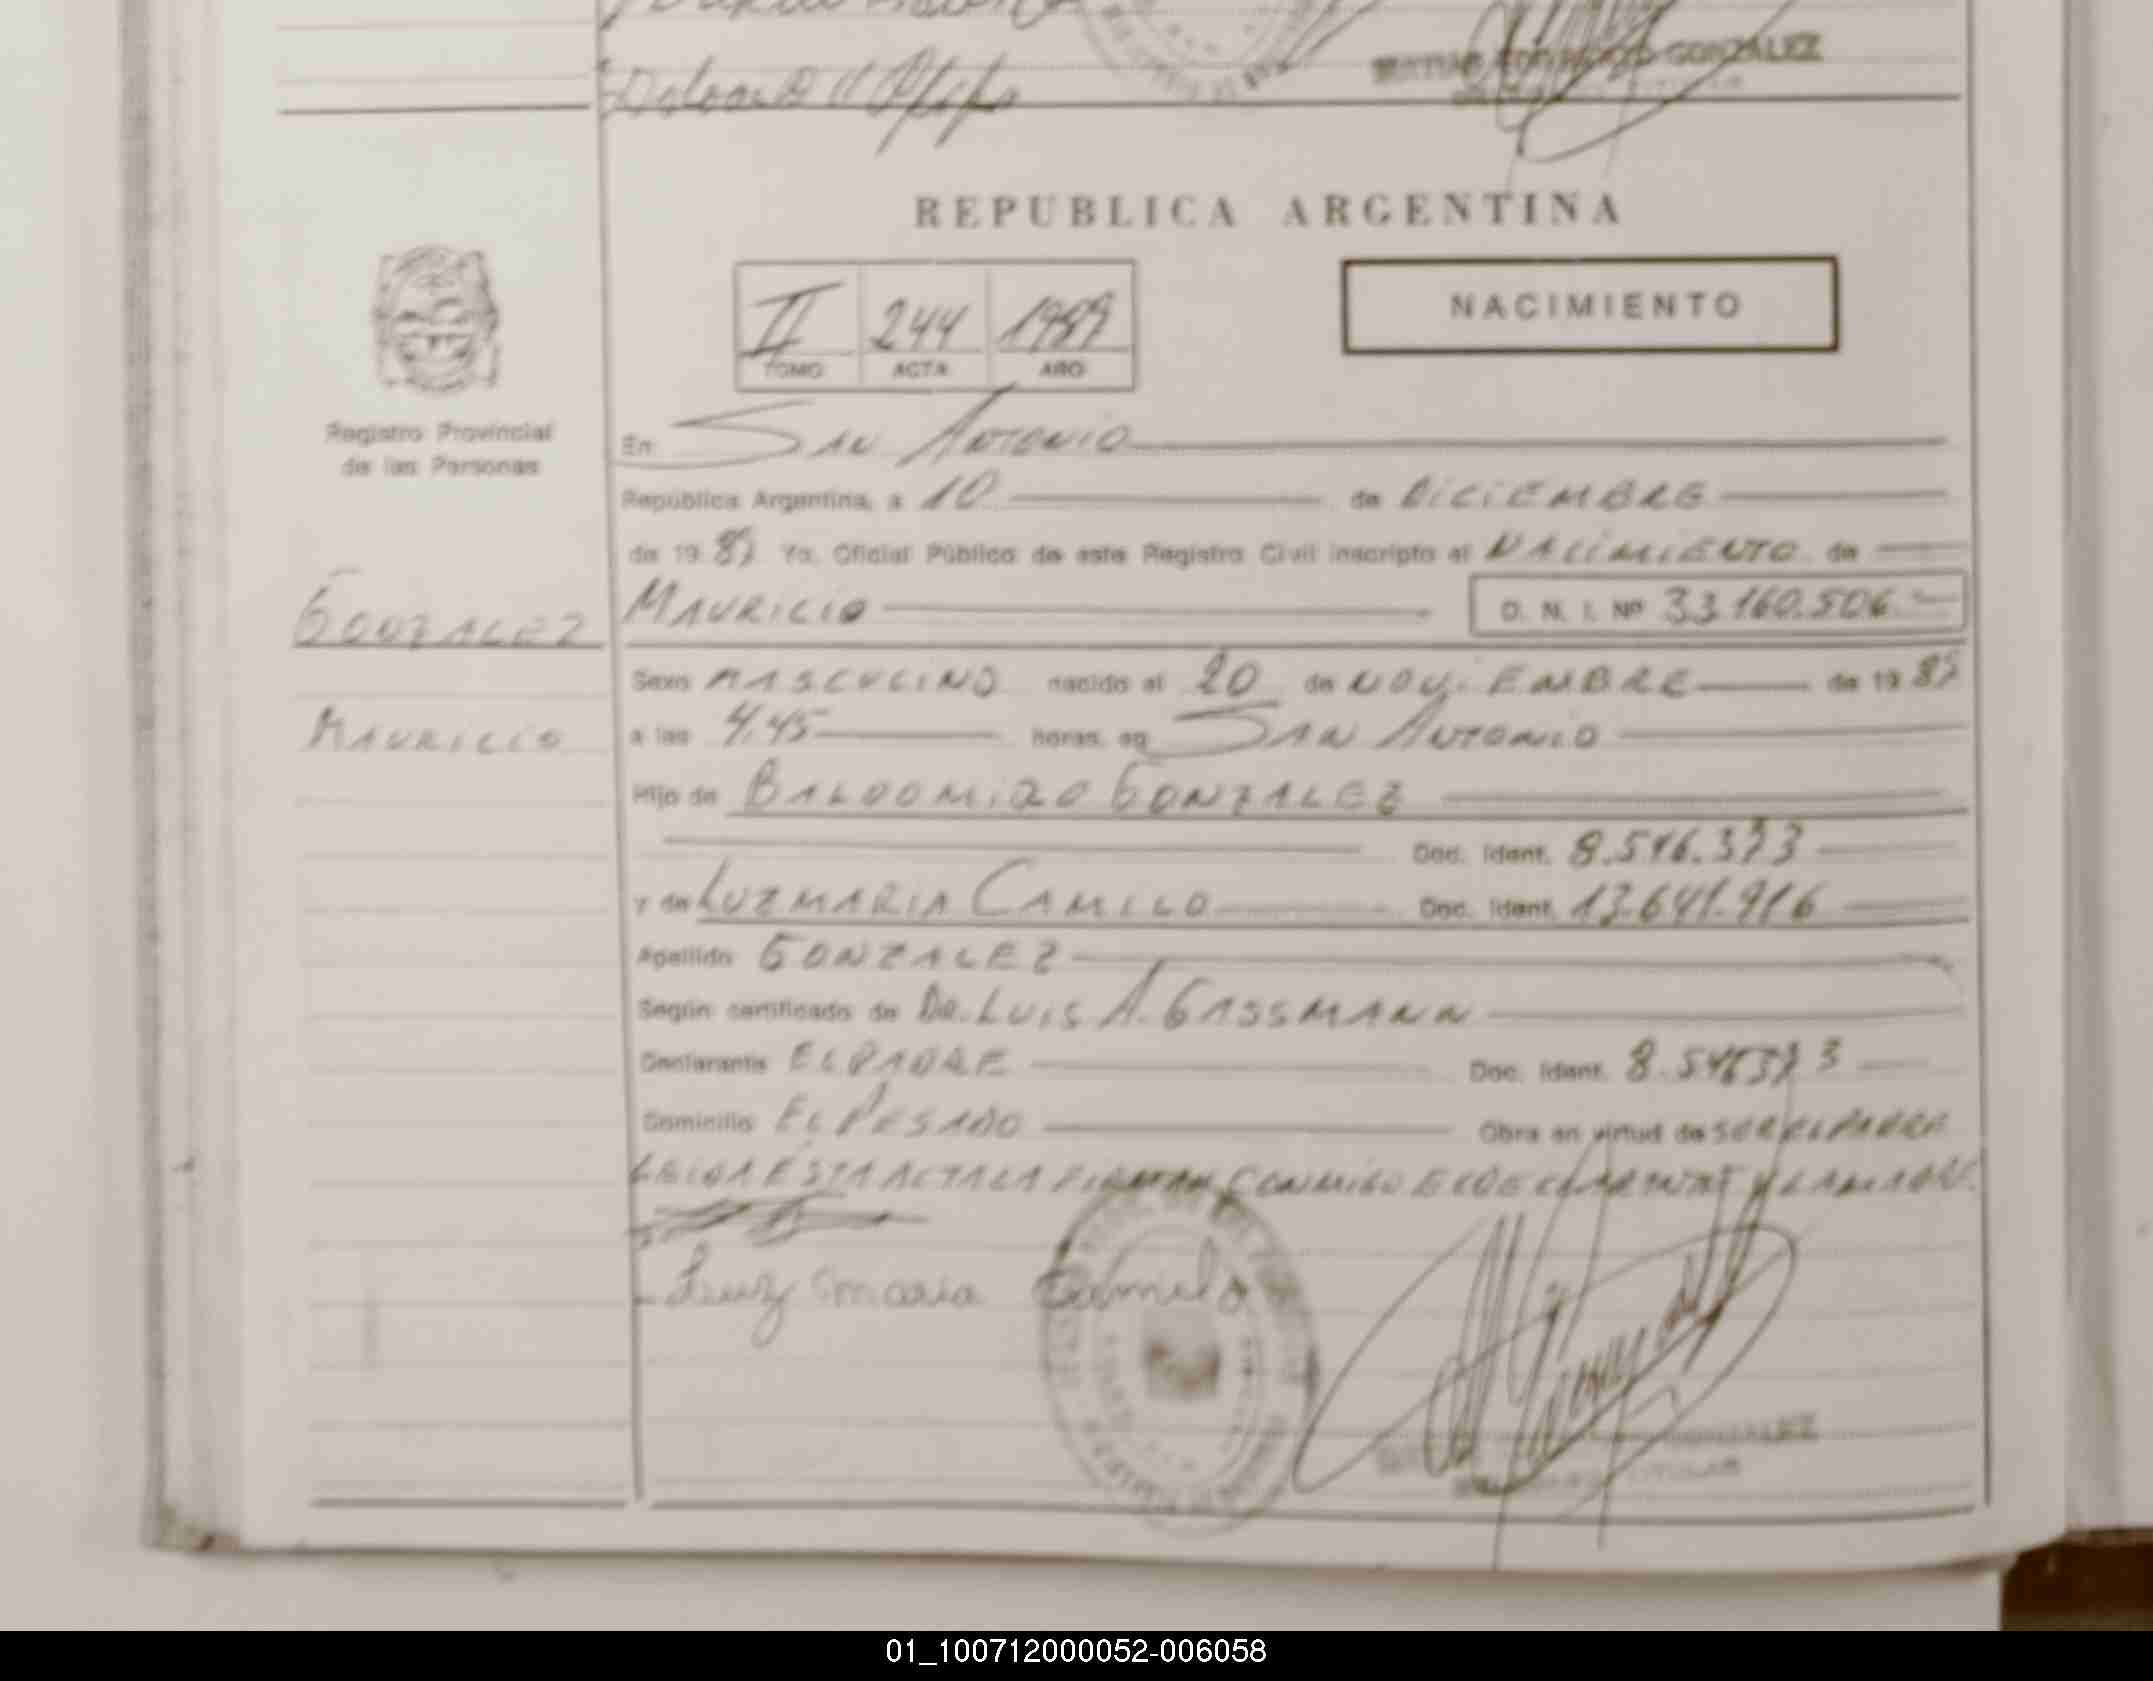 MATIAS EDMUNDO GONZALEZ
TITULAR
REPUBLICA ARGENTINA
II 244 1987
TOMO ACTA AÑO
NACIMIENTO
Registro Provincial
de las Personas
En SAN ANTONIO
República Argentina, a 10 de DICIEMBRE
de 19 87 Yo, Oficial Público de este Registro Civil inscripto el NACIMIENTO de
GONZALEZ
MAURICIO D. N. I. Nº 33.160.506.-
Sexo MASCULINO nacido el 20 de NOVIEMBRE de 19 87
MAURICIO
a las 4,45 horas, en SAN ANTONIO
Hijo de BALDOMIRO GONZALEZ
Doc. Ident. 8.546.373
y de LUZ MARIA CAMILO Doc. Ident. 13.641.916
Apellido GONZALEZ
Según certificado de DR. LUIS A. GASSMANN
Declarante EL PADRE Doc. Ident. 8.546373
Domicilio EL PESADO Obra en virtud de SER EL PADRE
LEIDA ESTA ACTA LA FIRMAN CONMIGO EL DECLARANTE Y LA MADRE.
Luz Maria Camilo
GONZALEZ
TITULAR
01_100712000052-006058